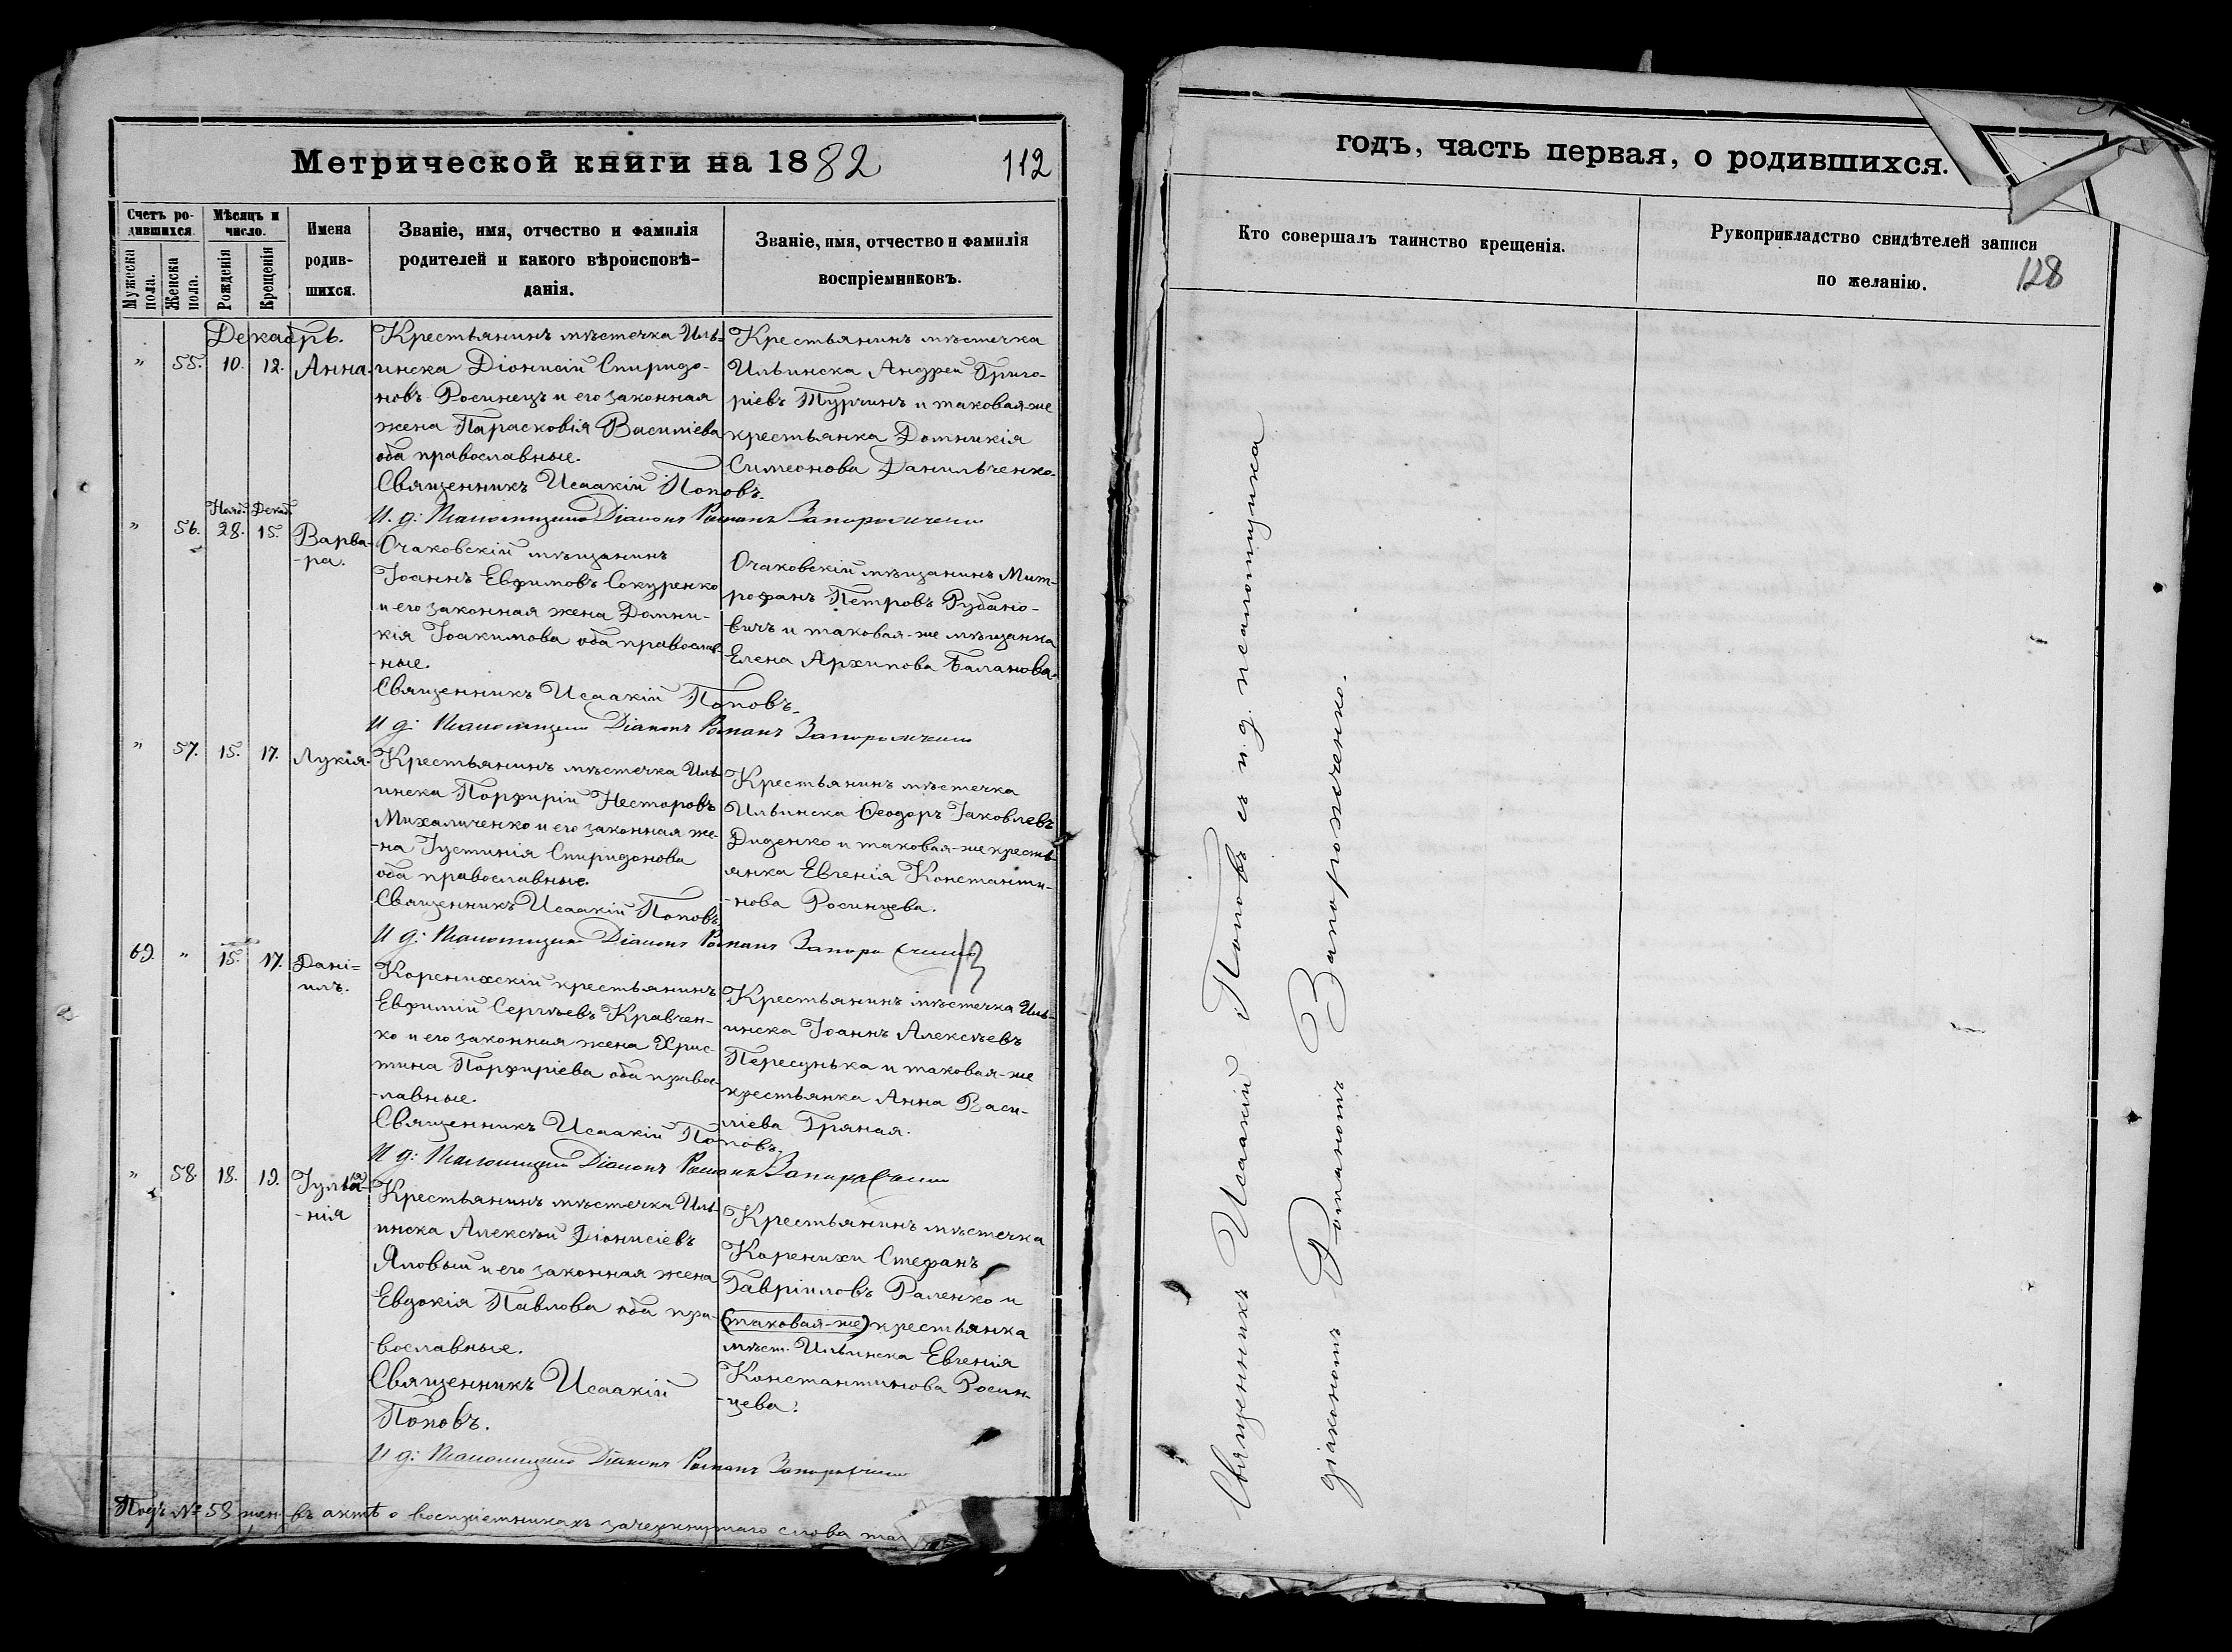 Метрической книги на 1882
112
Счетъ ро-
дившихся.
Мѣсяцъ и
число.
Мужеска
пола.
Женска
пола.
Рожденія
Крещенія
Имена
родив-
шихся.
Званіе, имя, отчество и фамилія
родителей и какого вѣроисповѣ-
данія.
Званіе, имя, отчество и фамилія
воспріемниковъ.
Декабрь.
" 55. 10. 12. Анна.
Крестьянинъ мѣстечка Иль-
инска Діонисій Спиридо-
новъ Росинецъ и его законная
жена Парасковія Василіева
оба православные.
Священникъ Исаакій Поповъ.
И. д: Псаломщика Діаконъ Романъ Запорожченко
Крестьянинъ мѣстечка
Ильинска Андрей Григо-
ріевъ Турчинъ и таковая-же
крестьянка Домникія
Симеонова Данильченко.
Нояб. Декаб.
" 56. 28. 15. Варва-
-ра.
Очаковскій мѣщанинъ
Іоаннъ Евфимовъ Сокуренко
и его законная жена Домни-
кія Іоакимова оба православ-
-ные.
Священникъ Исаакій Поповъ.
И д: Псаломщика Діаконъ Романъ Запорожченко
Очаковскій мѣщанинъ Мит-
рофанъ Петровъ Рубано-
вичъ и таковая-же мѣщанка
Елена Архипова Баланова.
" 57. 15. 17. Лукія.
Крестьянинъ мѣстечка Иль-
инска Порфирій Несторовъ
Михаличенко и его законная же-
-на Іустинія Спиридонова
оба православные.
Священникъ Исаакій Поповъ
И д: Псаломщика Діаконъ Романъ Запорожченко
Крестьянинъ мѣстечка
Ильинска Ѳеодоръ Іаковлевъ
Диденко и таковая-же кресть-
янка Евгенія Константи-
-нова Росинцева.
69. " 15. 17. Дані-
илъ.
Коренихскій крестьянинъ
Евфимій Сергѣевъ Кравчен-
ко и его законная жена Хрис-
тина Порфиріева оба правос-
-лавные.
Священникъ Исаакій Поповъ.
И д: Псаломщика Діаконъ Романъ Запорожченко
Крестьянинъ мѣстечка Иль-
инска Іоаннъ Алексѣевъ
Пересунька и таковая-же
крестьянка Анна Васи-
ліева Гряная.
" 58. 18. 19. Іуліа-
-нія
Крестьянинъ мѣстечка Иль-
инска Алексѣй Діонисіевъ
Яловый и его законная жена
Евдокія Павлова оба пра-
-вославные.
Священникъ Исаакій
Поповъ.
И д: Псаломщика Діаконъ Романъ Запорожченко
Крестьянинъ мѣстечка
Коренихи Стефанъ
Гавріиловъ Раленко и
(таковая-же) крестьянка
мѣст. Ильинска Евгенія
Константинова Росин-
-цева.
Подъ № 58 жен. въ актѣ о воспріемникахъ зачеркнутаго слова
годъ, часть первая, о родившихся.
Кто совершалъ таинство крещенія.
Рукоприкладство свидѣтелей записи
по желанію.
128
Священникъ Исаакій Поповъ съ и. д. псаломщика
діакономъ Романомъ Запорожченко.